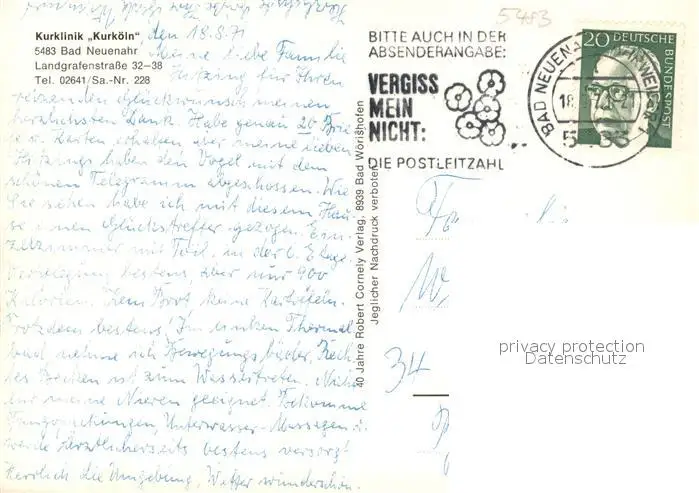 Kurklinik „Kurköln"
5483 Bad Neuenahr
Landgrafenstraße 32–38
Tel. 02641/Sa.-Nr. 228
den 18.8.71
Meine liebe Familie
Hetzing für Ihren
reizenden Glückwunsch meinen
herzlichsten Dank. Habe genau 20 Brie-
fe u. Karten erhalten aber meine lieben
Hetzings haben den Vogel mit dem
schönen Telegramm abgeschossen. Wie
Sie sehen habe ich mit diesem Hau-
se einen Glückstreffer gezogen. Ein-
zelzimmer mit Toil. in der 6. Etage
Verpflegung bestens, aber nur 900
Kalorien. Kein Brot, keine Kartoffeln.
Trotzdem bestens! Im linken Thermal
bad nehme ich Bewegungsbäder, Rech-
tes Becken ist zum Wassertreten. Nicht
für meine Nieren geeignet. Bekomme
Fangopackungen, Unterwasser-Massagen u.
werde ärztlicherseits bestens versorgt
Herrlich die Umgebung, Wetter wunderschön.
40 Jahre Robert Cornely Verlag, 8939 Bad Wörishofen
Jeglicher Nachdruck verboten
5483
BITTE AUCH IN DER
ABSENDERANGABE:
VERGISS
MEIN
NICHT:
DIE POSTLEITZAHL
BAD NEUENAHR-AHRWEILER 1
18
5483
20 DEUTSCHE
BUNDESPOST
34
privacy protection
Datenschutz